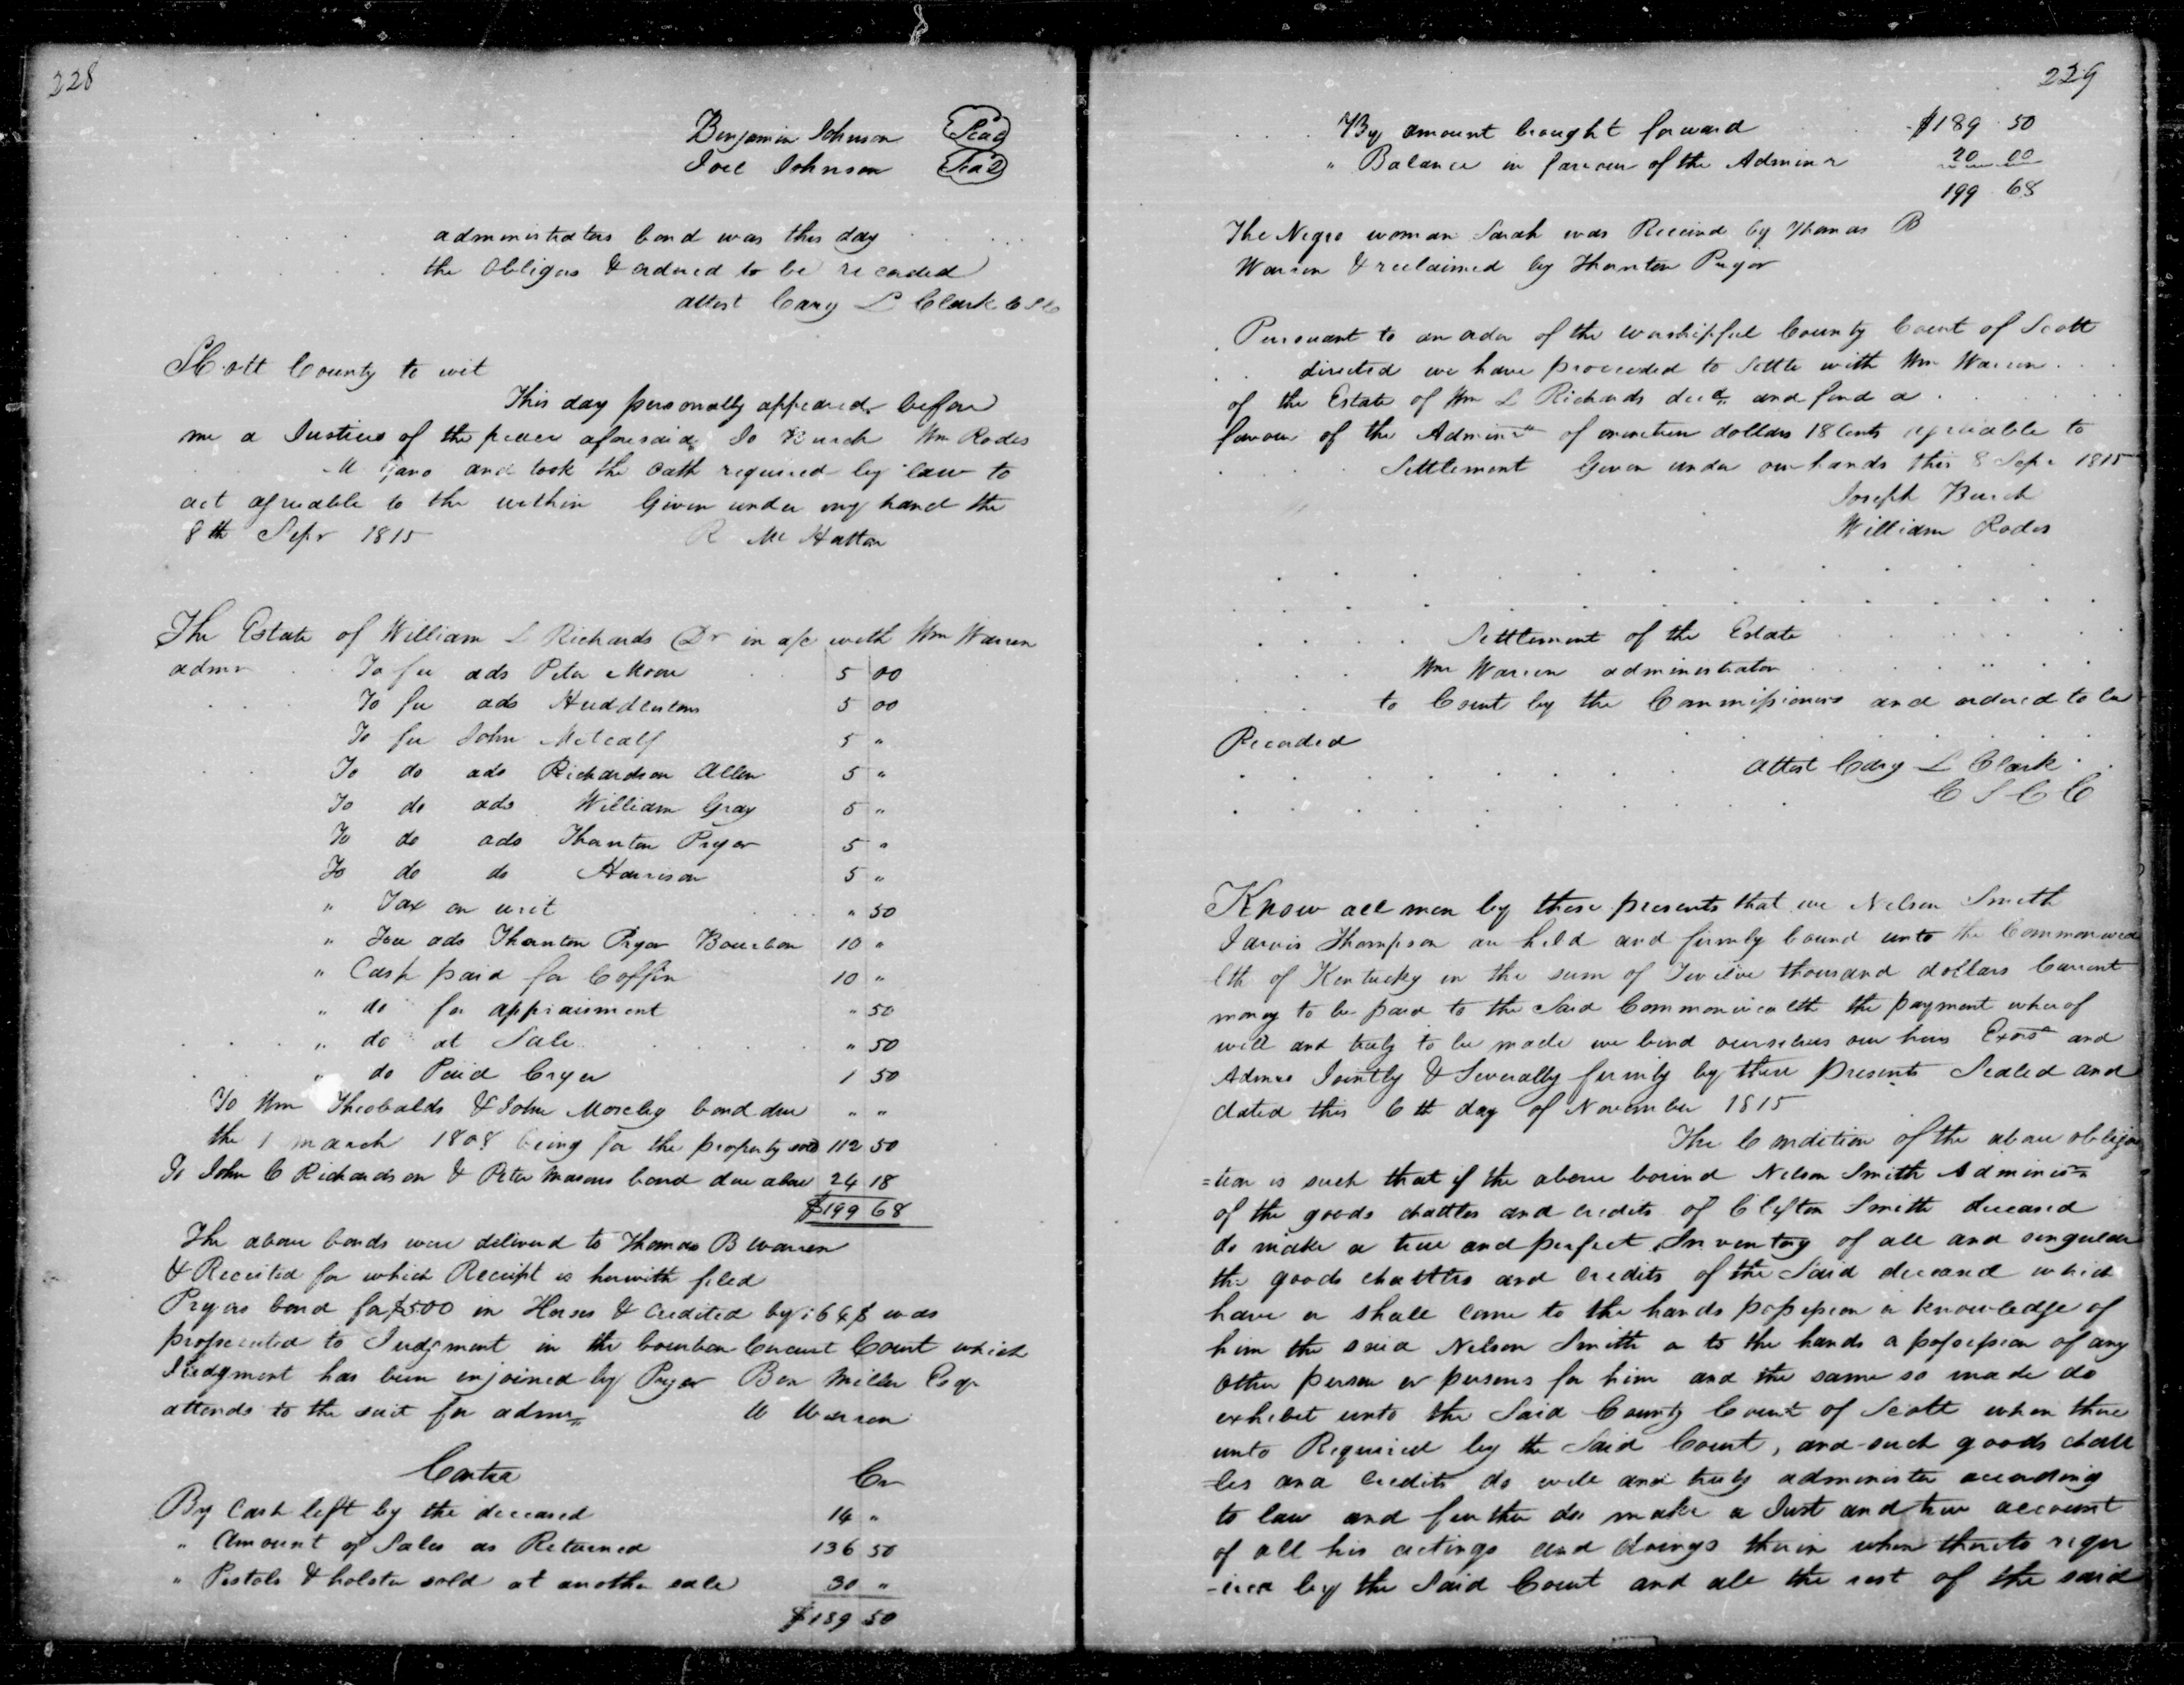 228
Benjamin Johnson Seal
Joel Johnson Seal
administrators bond was this day
the obligors & ordered to be recorded
attest Cary L Clark C S C
Scott County to wit
This day personally appeared before
me a Justice of the peace aforesaid Jo Burch Wm Rodes
M Gano and took the oath required by law to
act agreeable to the within Given under my hand the
8th Sepr 1815 R Mc Hatton
The Estate of William L Richards Dr in a/c with Wm Warren
admr To fee ads Peter Moore 5 00
To fee ads Huddlestons 5 00
To fee John Metcalf 5 "
To do ads Richardson Allen 5 "
To do ads William Gray 5 "
To do ads Thornton Pryor 5 "
To do do Harrison 5 "
" Tax on writ " 50
" Fee ads Thornton Pryor Bourbon 10 "
" Cash paid for Coffin 10 "
" do for appraisment " 50
" do at Sale " 50
" do Paid Cryer 1 50
To Wm Theobalds & John Moseley bond due " "
the 1 march 1808 being for the property sold 112 50
To John C Richardson & Peter Masons bond due above 24 18
$199 68
The above bonds were delivered to Thomas B Warren
& Receited for which Receipt is herwith filed
Pryors bond for $500 in Horses & credited by 164$ was
prossecuted to Judgment in the bourbon Circuit Court which
Judgment has been injoined by Pryor Ben Miller Esqr
attends to the suit for admr W Warren
Contra Cr
By Cash left by the deceased 14 "
" Amount of Sales as Returned 136 50
" Pistols & holster sold at another sale 30 "
$189 50
229
By amount brought forward $189 50
" Balance in favour of the Adminr 20 00
199 68
The Negro woman Sarah was Received by Thomas B
Warren & reclaimed by Thornton Pryor
Pursuant to an order of the worshipful County Court of Scott
directed we have proceeded to settle with Wm Warren
of the Estate of Wm L Richards decd and find a
favour of the Adminr of nineteen dollars 18 Cents agreeable to
Settlement Given under our hands this 8 Sepr 1815
Joseph Burch
William Rodes
Settlement of the Estate
Wm Warren administrator
to Court by the Commissioners and ordered to be
Recorded
Attest Cary L Clark
C S C C
Know all men by these presents that we Nelson Smith
Jarvis Thompson are held and firmly bound unto the Commonwea
lth of Kentucky in the sum of Twelve thousand dollars Current
money to be paid to the Said Commonwealth the payment wherof
will and truly to be made we bind ourselves our heirs Exors and
Admrs Jointly & Severally firmly by these Presents Sealed and
dated this 6th day of November 1815
The Condition of the above obliga
=tion is such that if the above bound Nelson Smith Administr
of the goods chattles and credits of Clifton Smith deceased
do make a true and perfect Inventory of all and singular
the goods chattles and credits of the Said deceased which
have or shall come to the hands possession or knowledge of
him the said Nelson Smith or to the hands or possession of any
other person or persons for him and the same so made do
exhibet unto the Said County Court of Scott when there
unto Required by the Said Court, and such goods chatt
les and Credits do well and truly administer according
to law and further do make a Just and true account
of all his actings and doings therin when thereto requ
-ired by the Said Court and all the rest of the said